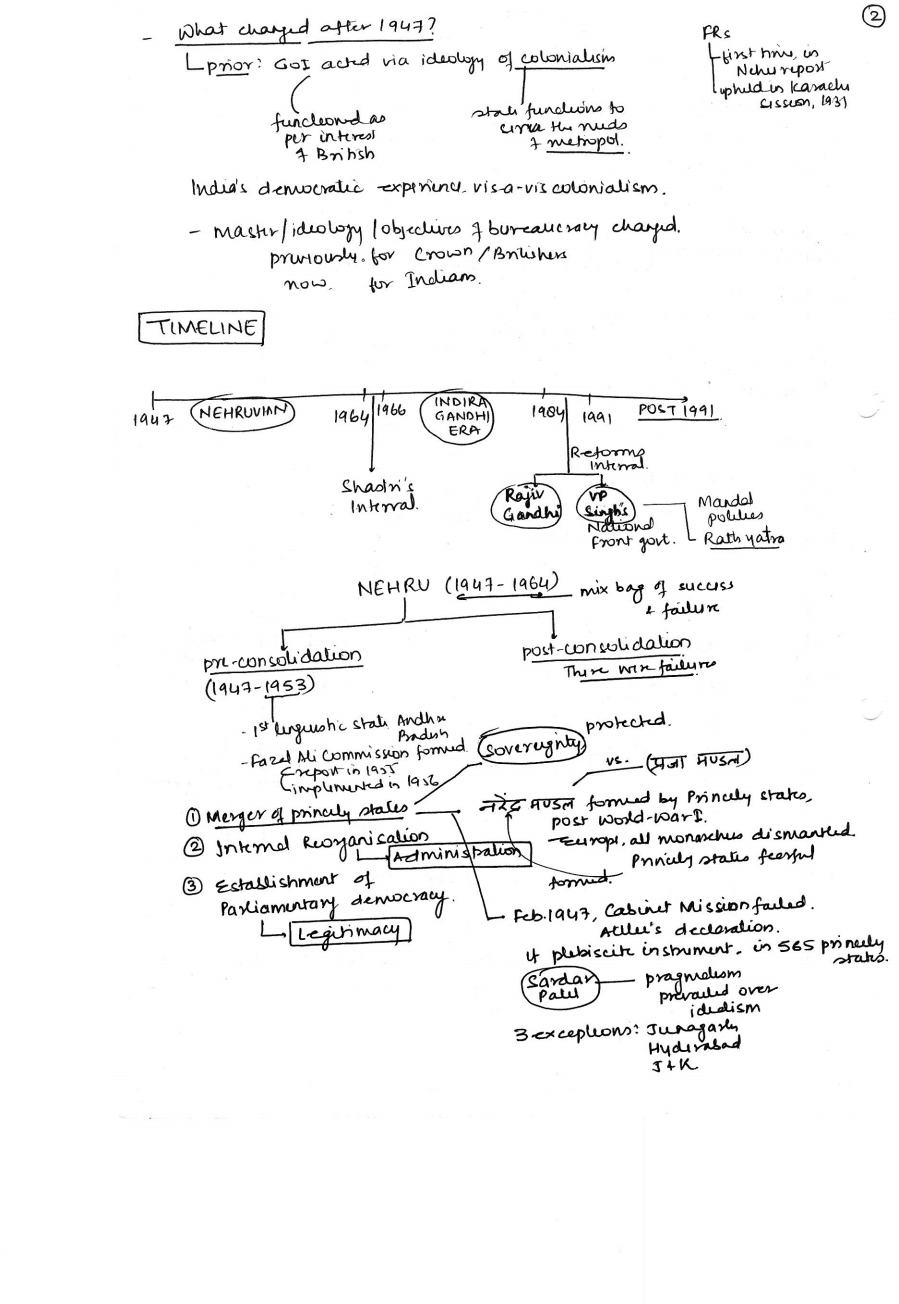 2
- What changed after 1947?
prior: GoI acted via ideology of colonialism
functioned as
per interest
of British
state functions to
serve the needs
of metropol.
FRs
first time, in
Nehru report
upheld in Karachi
session, 1931
India's democratic experience vis-a-vis colonialism.
- Master/ideology/objectives of bureaucracy changed.
previously for Crown/Britishers
now for Indians.
TIMELINE
1947
NEHRUVIAN
1964
1966
INDIRA
GANDHI
ERA
1984
1991
POST 1991
Shastri's
Interval
Reforms
Interval.
Rajiv
Gandhi
VP
Singh's
National
Front govt.
Mandal
politics
Rath yatra
NEHRU (1947-1964)
mix bag of success
& failure
pre-consolidation
(1947-1953)
post-consolidation
There were failures
- 1st linguistic state Andhra
Pradesh
- Fazal Ali Commission formed.
report in 1955
implemented in 1956
Sovereignty
protected.
vs. (प्रजा मण्डल)
① Merger of princely states
नरेंद्र मण्डल formed by Princely states,
post World-War I.
- Europe, all monarchies dismantled.
Princely states fearful
formed.
② Internal Reorganisation
Administration
③ Establishment of
Parliamentary democracy.
Legitimacy
Feb. 1947, Cabinet Mission failed.
Attlee's declaration.
if plebiscite instrument. in 565 princely
states.
Sardar
Patel
pragmatism
prevailed over
idealism
3 exceptions: Junagarh
Hyderabad
J+K